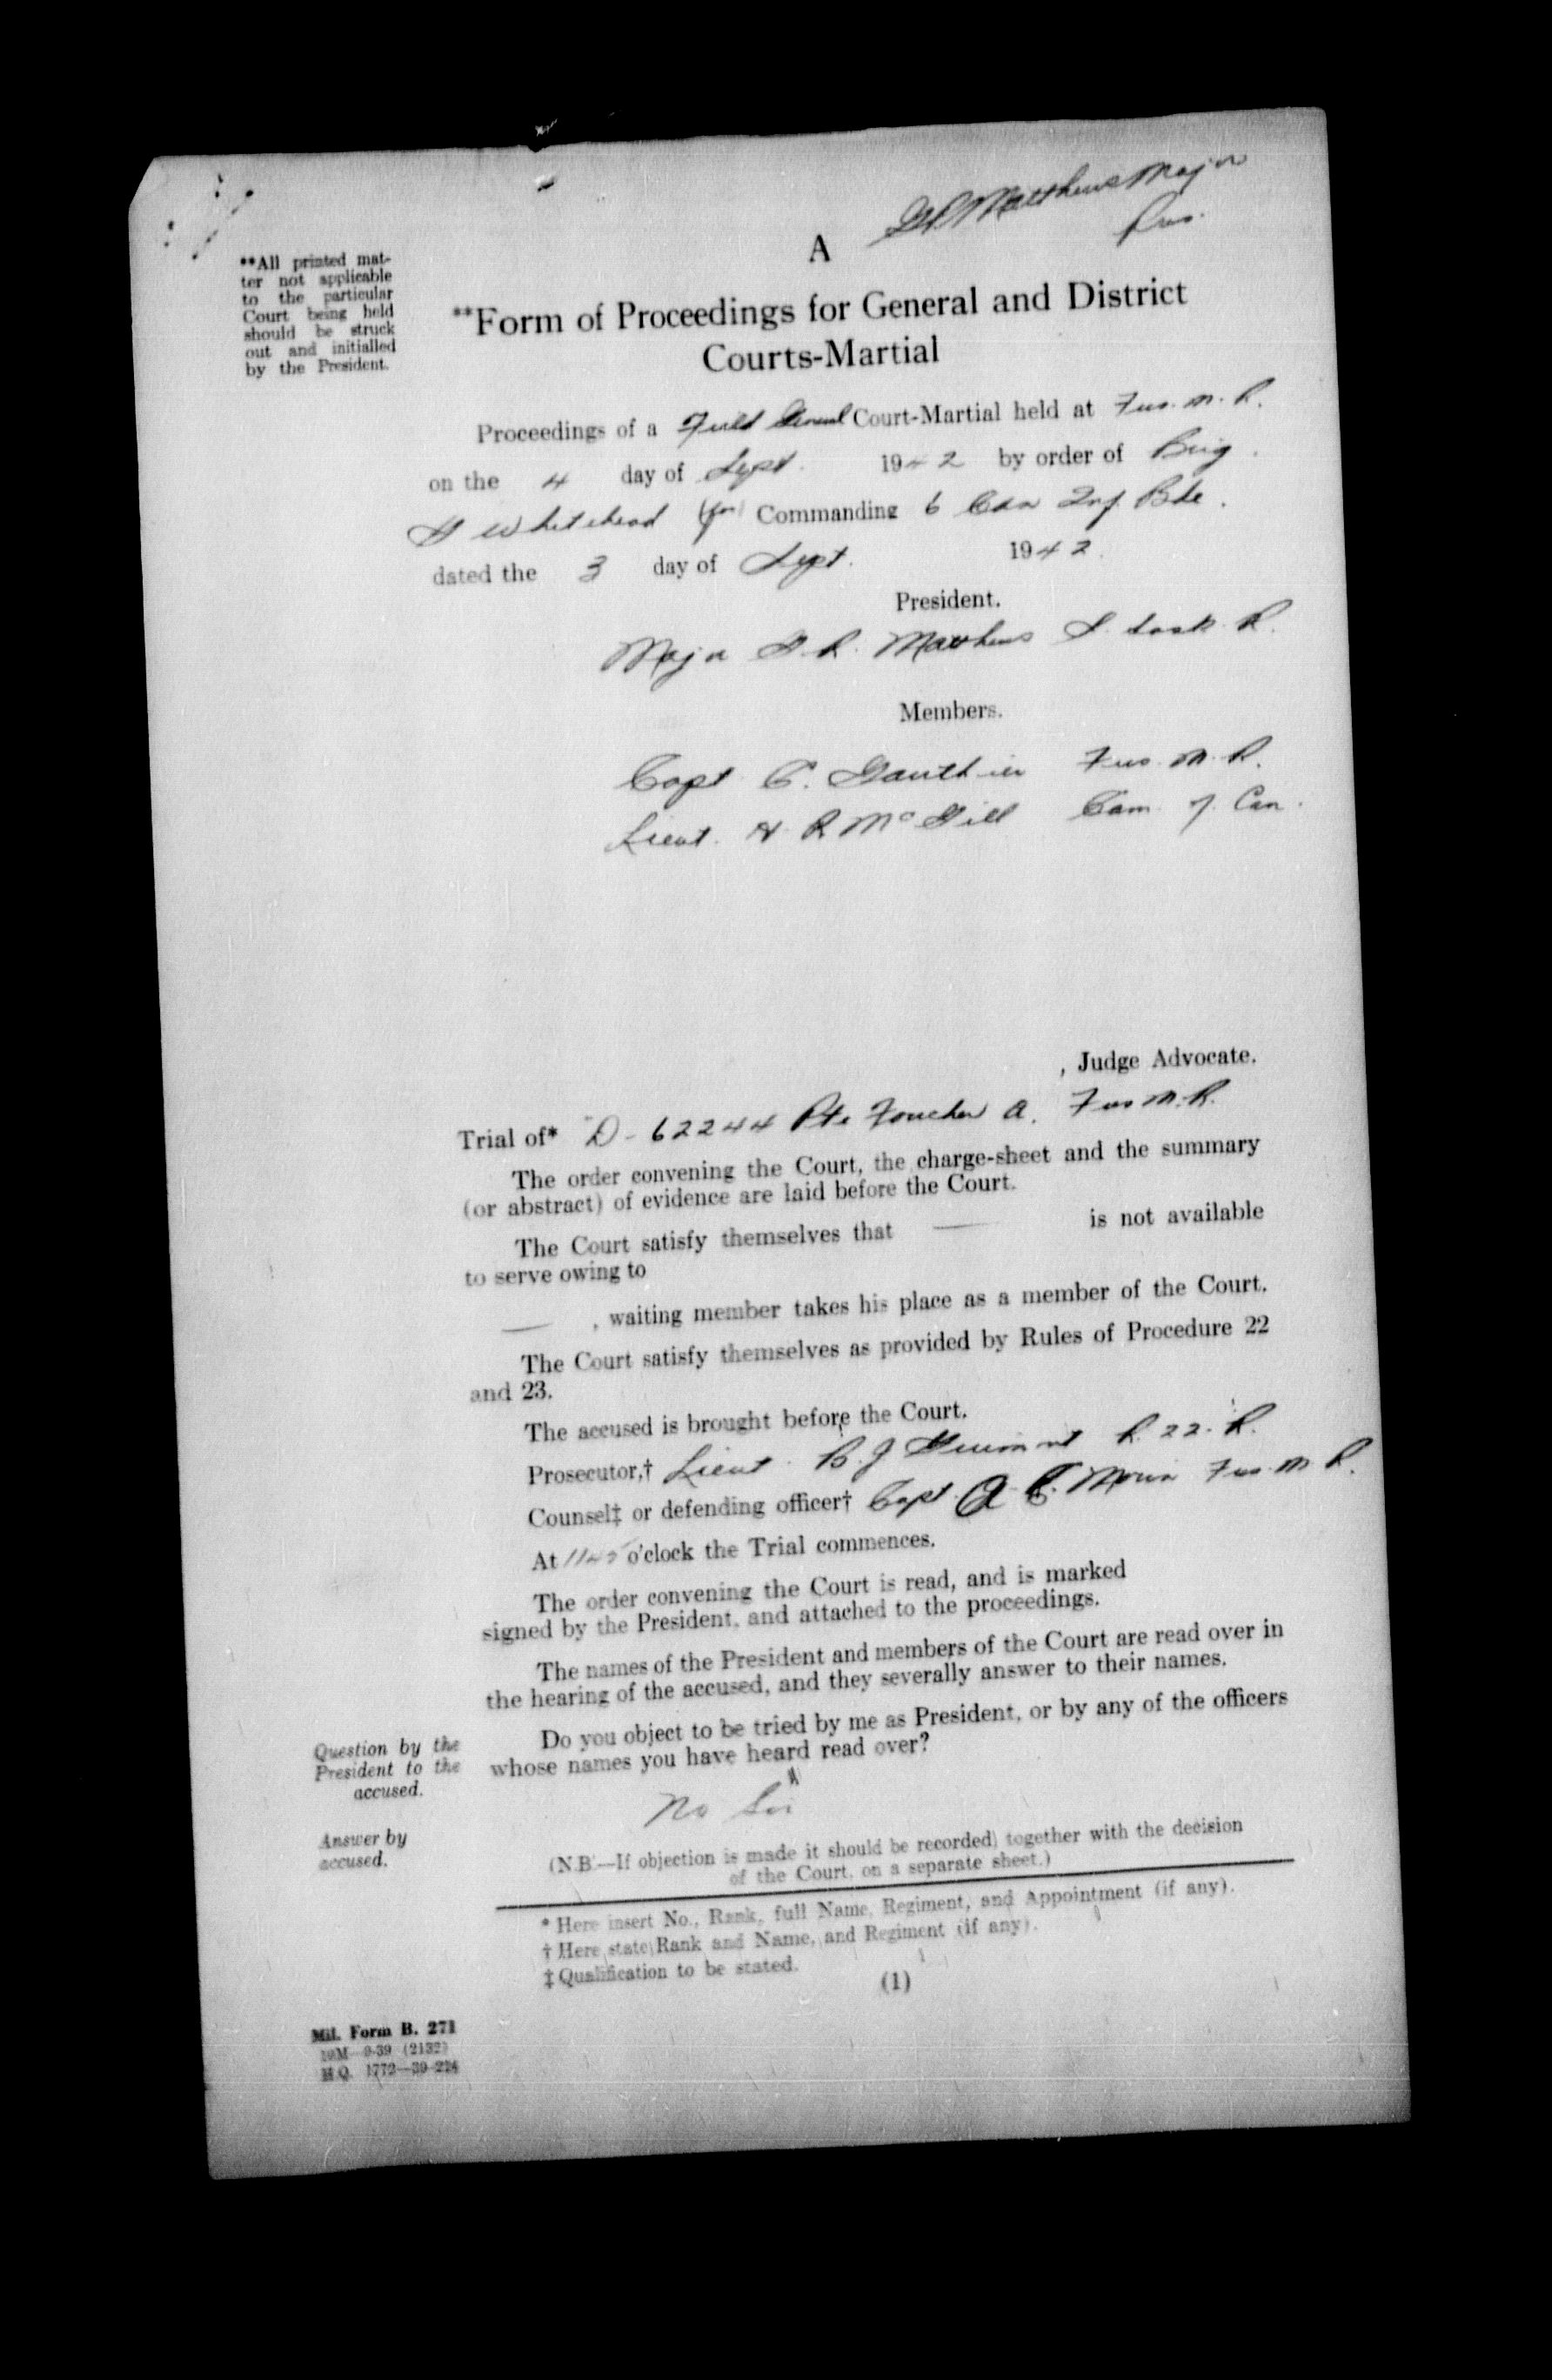 GR Matthews Major
Pres.
A
**All printed mat-
ter not applicable
to the particular
Court being held
should be struck
out and initialled
by the President.
**Form of Proceedings for General and District
Courts-Martial
Proceedings of a Field General Court-Martial held at Fus. M. R.
on the 4 day of Sept. 1942 by order of Brig.
G Whitehead Commanding 6 Cdn Inf. Bde.
dated the 3 day of Sept. 1942.
President.
Major G. R. Matthews S. Sask. R.
Members.
Capt C. Gauthier Fus. M. R.
Lieut. H. R McGill Cam. of Can.
, Judge Advocate.
Trial of* D-62244 Pte Foucher A. Fus M.R.
The order convening the Court, the charge-sheet and the summary
(or abstract) of evidence are laid before the Court.
The Court satisfy themselves that — is not available
to serve owing to
— , waiting member takes his place as a member of the Court.
The Court satisfy themselves as provided by Rules of Procedure 22
and 23.
The accused is brought before the Court.
Prosecutor,† Lieut. B. J R. 22. R.
Counsel‡ or defending officer† Capt. Morin Fus. M. R.
At 1145 o'clock the Trial commences.
The order convening the Court is read, and is marked
signed by the President, and attached to the proceedings.
The names of the President and members of the Court are read over in
the hearing of the accused, and they severally answer to their names.
Question by the
President to the
accused.
Do you object to be tried by me as President, or by any of the officers
whose names you have heard read over?
Answer by
accused.
No Sir
(N.B.—If objection is made it should be recorded) together with the decision
of the Court, on a separate sheet.)
* Here insert No., Rank, full Name, Regiment, and Appointment (if any).
† Here state Rank and Name, and Regiment (if any).
‡ Qualification to be stated.
(1)
Mil. Form B. 271
10M—9-39 (2132)
H.Q. 1772—39-224